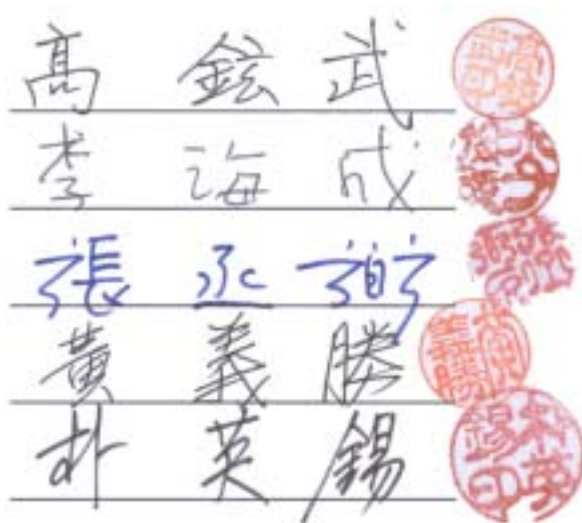 高 鉉 武
李 海 成
張 丞 弼
黃 義 勝
朴 英 錫